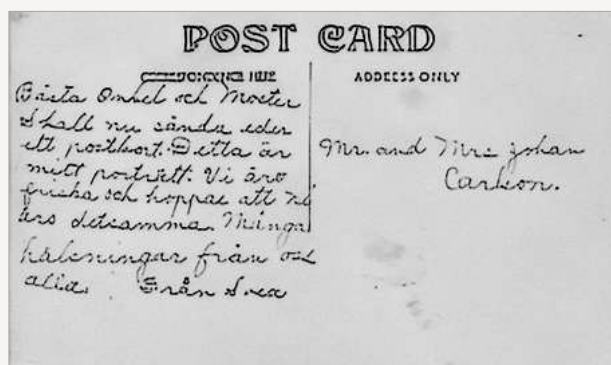 POST CARD
ADDRESS ONLY
Bästa Onkel och Moster
Skall nu sända eder
ett postkort. Detta är
mitt porträtt. Vi äro
friska och hoppas att Ni
äro detsamma. Många
hälsningar från oss
alla. Från Svea
Mr. and Mrs Johan
Carlson.